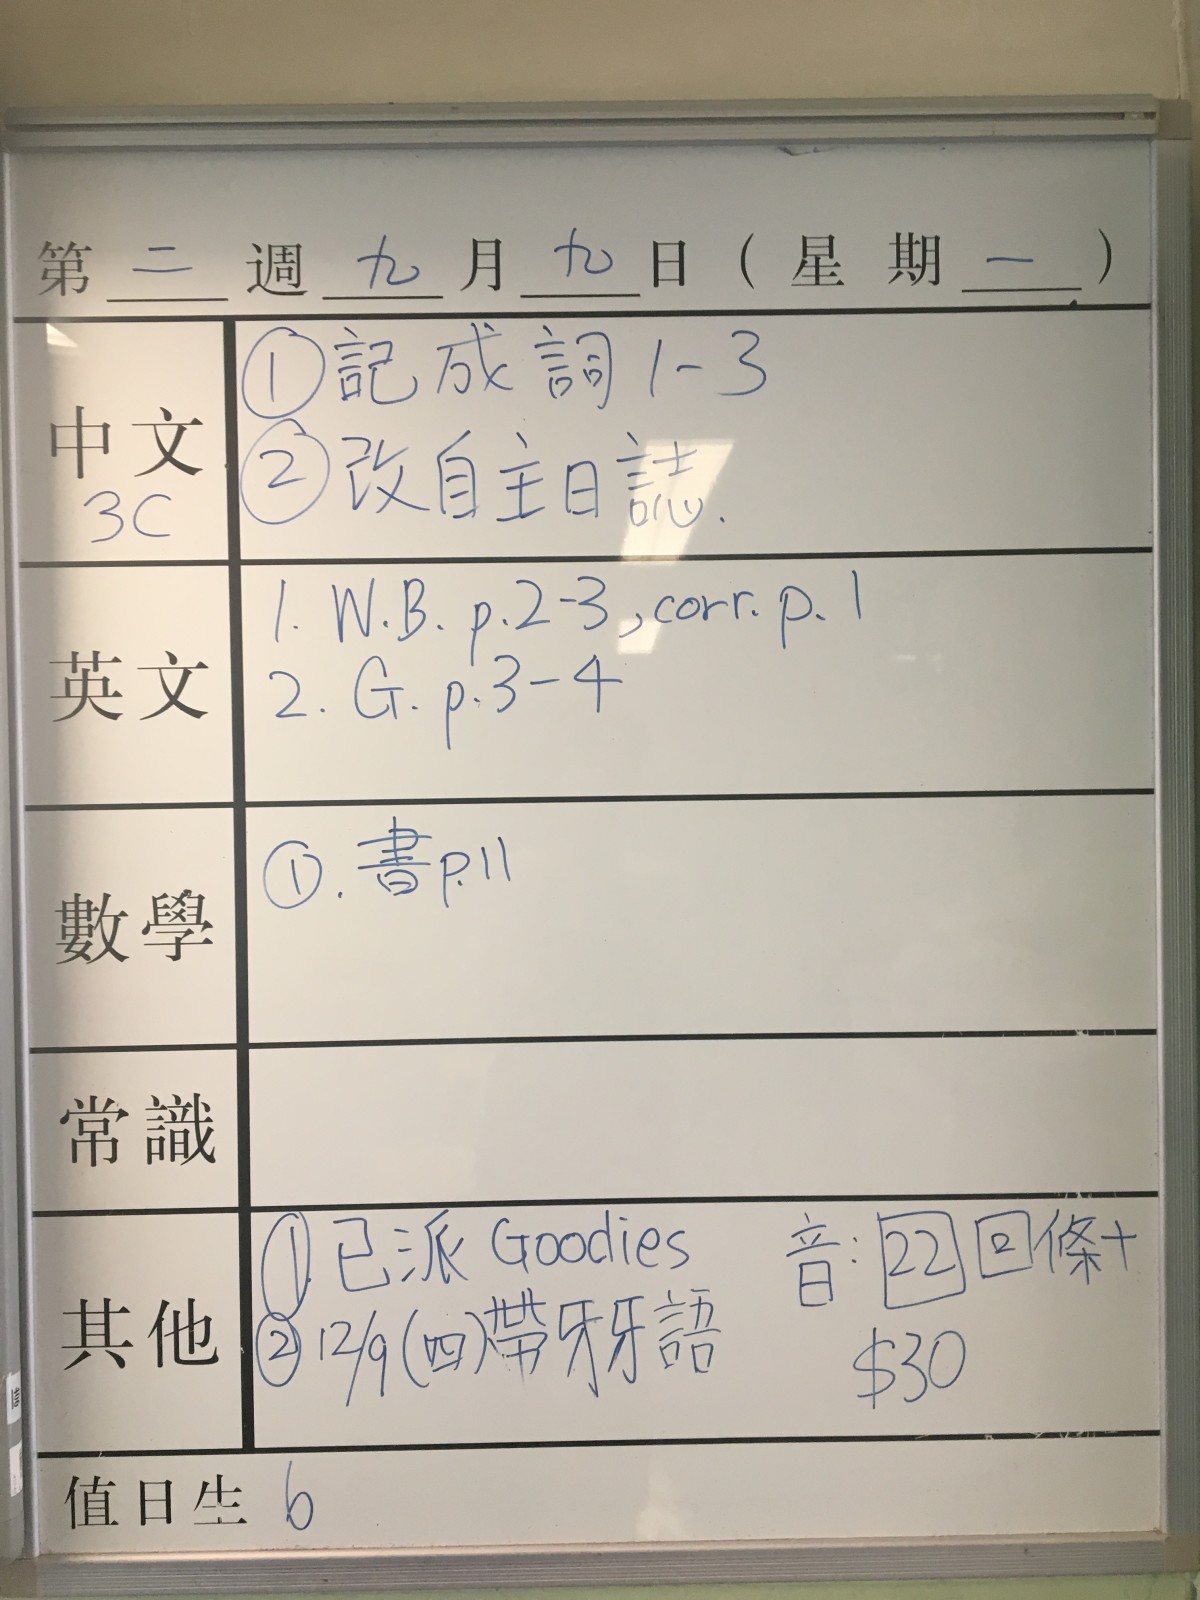 第 二 週 九 月 九 日 ( 星 期 一 )
中文
3C
① 記成詞 1-3
② 改自主日誌.
英文
1. W.B. p.2-3, corr. p.1
2. G. p.3-4
數學
①. 書p.11
常識
其他
① 已派 Goodies
② 12/9 (四) 帶牙牙語
音: 22 回條+
$30
值日生 6